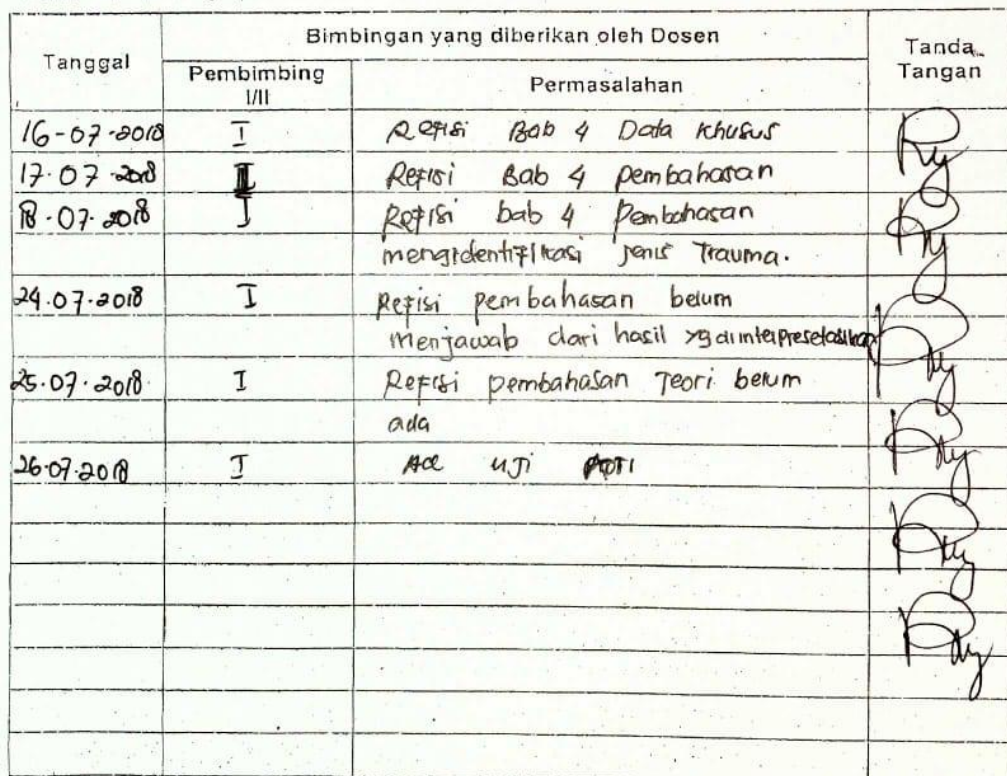 Tanggal
Bimbingan yang diberikan oleh Dosen
Tanda
Tangan
Pembimbing
I/II
Permasalahan
16-07-2018 I Refisi Bab 4 Data Khusus
17.07.2018 Refisi Bab 4 pembahasan
18.07.2018 I Refisi bab 4 Pembahasan
mengidentifikasi jenis Trauma.
24.07.2018 I Refisi pembahasan belum
menjawab dari hasil yg
25.07.2018 I Refisi pembahasan Teori belum
ada
26.07.2018 I Acc Uji